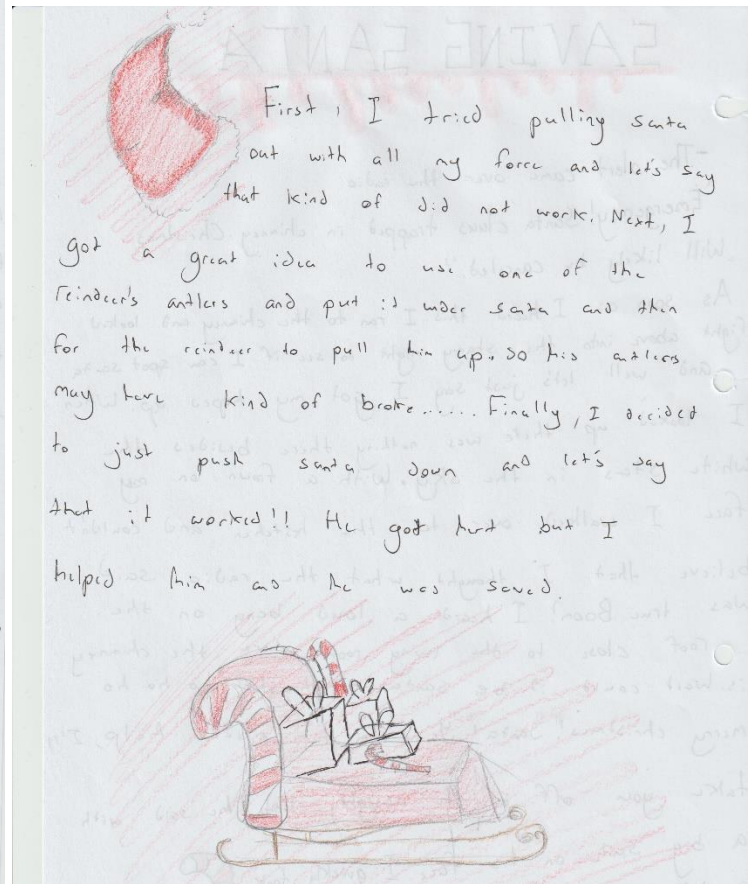 First, I tried pulling santa
out with all my force and let's say
that kind of did not work. Next, I
got a great idea to use one of the
reindeer's antlers and put it under santa and then
for the reindeer to pull him up. So his antlers
may have kind of broke...... Finally, I decided
to just push santa down and let's say
that it worked!! He got hurt but I
helped him and he was saved.